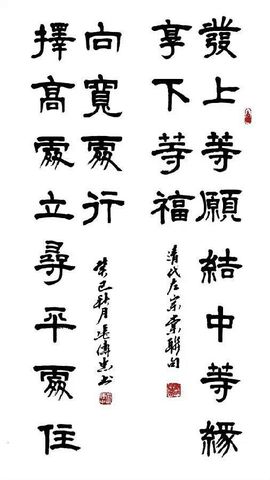 發上等願結中等緣
享下等福
清代左宗棠聯句
擇高處立尋平處住
向寬處行
癸巳秋月